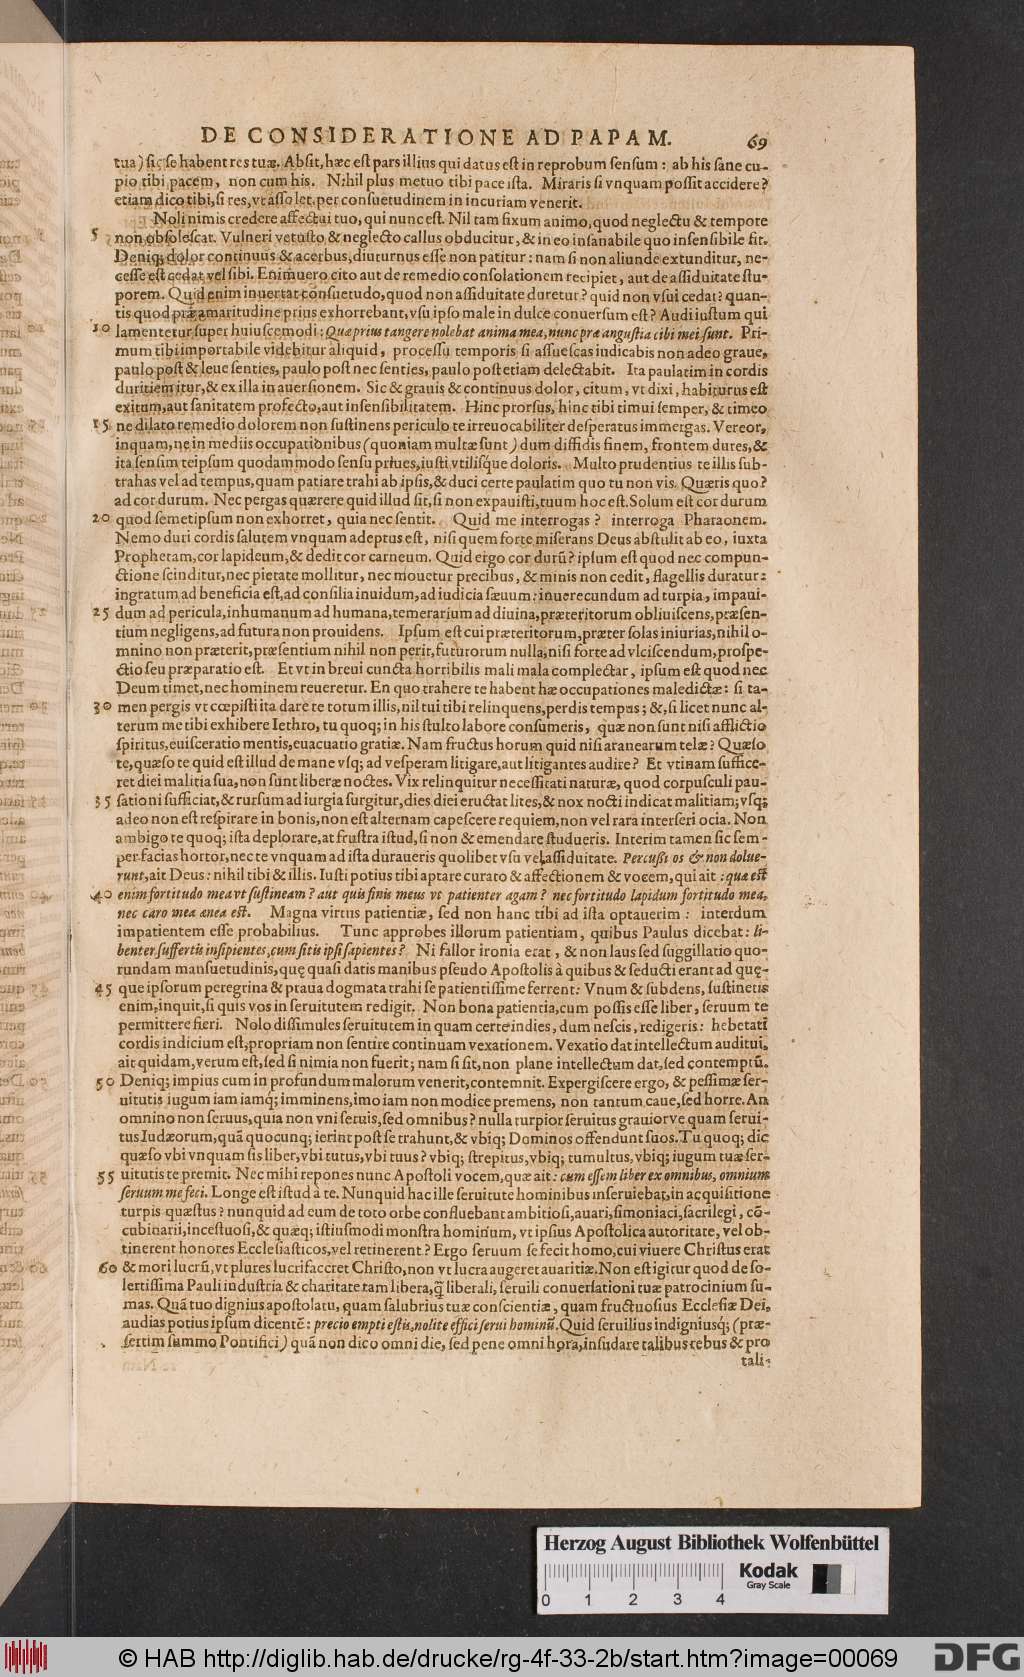 DE CONSIDERATIONE AD PAPAM. 69
tua) sic se habent res tuæ. Absit, hæc est pars illius qui datus est in reprobum sensum : ab his sane cu-
pio tibi pacem, non cum his. Nihil plus metuo tibi pace ista. Miraris si vnquam possit accidere?
etiam dico tibi, si res, vt assolet, per consuetudinem in incuriam venerit.
Noli nimis credere affectui tuo, qui nunc est. Nil tam fixum animo, quod neglectu & tempore
5 non obsolescat. Vulneri vetusto & neglecto callus obducitur, & in eo insanabile quo insensibile fit.
Deniq; dolor continuus & acerbus, diuturnus esse non patitur : nam si non aliunde extunditur, ne-
cesse est cedat vel sibi. Enimuero cito aut de remedio consolationem recipiet, aut de assiduitate stu-
porem. Quid enim inuertat consuetudo, quod non assiduitate duretur? quid non vsui cedat? quan-
tis quod præ amaritudine prius exhorrebant, vsu ipso male in dulce conuersum est? Audi iustum qui
10 lamentetur super huiuscemodi : Quæ prius tangere nolebat anima mea, nunc præ angustia cibi mei sunt. Pri-
mum tibi importabile videbitur aliquid, processu temporis si assuescas iudicabis non adeo graue,
paulo post & leue senties, paulo post nec senties, paulo post etiam delectabit. Ita paulatim in cordis
duritiem itur, & ex illa in auersionem. Sic & grauis & continuus dolor, citum, vt dixi, habiturus est
exitum, aut sanitatem profecto, aut insensibilitatem. Hinc prorsus, hinc tibi timui semper, & timeo
15 ne dilato remedio dolorem non sustinens periculo te irreuocabiliter desperatus immergas. Vereor,
inquam, ne in mediis occupationibus (quoniam multæ sunt) dum diffidis finem, frontem dures, &
ita sensim teipsum quodammodo sensu priues, iusti vtilisque doloris. Multo prudentius te illis sub-
trahas vel ad tempus, quam patiare trahi ab ipsis, & duci certe paulatim quo tu non vis. Quæris quo?
ad cor durum. Nec pergas quærere quid illud sit, si non expauisti, tuum hoc est. Solum est cor durum
20 quod semetipsum non exhorret, quia nec sentit. Quid me interrogas? interroga Pharaonem.
Nemo duri cordis salutem vnquam adeptus est, nisi quem forte miserans Deus abstulit ab eo, iuxta
Prophetam, cor lapideum, & dedit cor carneum. Quid ergo cor durũ? ipsum est quod nec compun-
ctione scinditur, nec pietate mollitur, nec mouetur precibus, & minis non cedit, flagellis duratur:
ingratum ad beneficia est, ad consilia inuidum, ad iudicia sæuum : inuerecundum ad turpia, impaui-
25 dum ad pericula, inhumanum ad humana, temerarium ad diuina, præteritorum obliuiscens, præsen-
tium negligens, ad futura non prouidens. Ipsum est cui præteritorum, præter solas iniurias, nihil o-
mnino non præterit, præsentium nihil non perit, futurorum nulla, nisi forte ad vlciscendum, prospe-
ctio seu præparatio est. Et vt in breui cuncta horribilis mali mala complectar, ipsum est quod nec
Deum timet, nec hominem reueretur. En quo trahere te habent hæ occupationes maledictæ: si ta-
30 men pergis vt cœpisti ita dare te totum illis, nil tui tibi relinquens, perdis tempus; &, si licet nunc al-
terum me tibi exhibere Iethro, tu quoq; in his stulto labore consumeris, quæ non sunt nisi afflictio
spiritus, euisceratio mentis, euacuatio gratiæ. Nam fructus horum quid nisi aranearum telæ? Quæso
te, quæso te quid est illud de mane vsq; ad vesperam litigare, aut litigantes audire? Et vtinam suffice-
ret diei malitia sua, non sunt liberæ noctes. Vix relinquitur necessitati naturæ, quod corpusculi pau-
35 sationi sufficiat, & rursum ad iurgia surgitur, dies diei eructat lites, & nox nocti indicat malitiam; vsq;
adeo non est respirare in bonis, non est alternam capescere requiem, non vel rara interseri ocia. Non
ambigo te quoq; ista deplorare, at frustra istud, si non & emendare studueris. Interim tamen sic sem-
per facias hortor, nec te vnquam ad ista duraueris quolibet vsu vel assiduitate. Percussi os & non dolue-
runt, ait Deus : nihil tibi & illis. Iusti potius tibi aptare curato & affectionem & vocem, qui ait : quæ est
40 enim fortitudo mea vt sustineam? aut quis finis meus vt patienter agam? nec fortitudo lapidum fortitudo mea,
nec caro mea ænea est. Magna virtus patientiæ, sed non hanc tibi ad ista optauerim : interdum
impatientem esse probabilius. Tunc approbes illorum patientiam, quibus Paulus dicebat : li-
benter suffertis insipientes, cum sitis ipsi sapientes? Ni fallor ironia erat, & non laus sed suggillatio quo-
rundam mansuetudinis, quę quasi datis manibus pseudo Apostolis à quibus & seducti erant ad quę-
45 que ipsorum peregrina & praua dogmata trahi se patientissime ferrent: Vnum & subdens, sustinetis
enim, inquit, si quis vos in seruitutem redigit. Non bona patientia, cum possis esse liber, seruum te
permittere fieri. Nolo dissimules seruitutem in quam certe indies, dum nescis, redigeris : hebetati
cordis indicium est, propriam non sentire continuam vexationem. Vexatio dat intellectum auditui,
ait quidam, verum est, sed si nimia non fuerit; nam si sit, non plane intellectum dat, sed contemptũ.
50 Deniq; impius cum in profundum malorum venerit, contemnit. Expergiscere ergo, & pessimæ ser-
uitutis iugum iam iamq; imminens, imo iam non modice premens, non tantum caue, sed horre. An
omnino non seruus, quia non vni seruis, sed omnibus? nulla turpior seruitus grauiorve quam serui-
tus Iudæorum, quã quocunq; ierint post se trahunt, & vbiq; Dominos offendunt suos. Tu quoq; dic
quæso vbi vnquam sis liber, vbi tutus, vbi tuus? vbiq; strepitus, vbiq; tumultus, vbiq; iugum tuæ ser-
55 uitutis te premit. Nec mihi repones nunc Apostoli vocem, quæ ait : cum essem liber ex omnibus, omnium
seruum me feci. Longe est istud à te. Nunquid hac ille seruitute hominibus inseruiebat, in acquisitione
turpis quæstus? nunquid ad eum de toto orbe confluebant ambitiosi, auari, simoniaci, sacrilegi, cõ-
cubinarii, incestuosi, & quæq; istiusmodi monstra hominum, vt ipsius Apostolica autoritate, vel ob-
tinerent honores Ecclesiasticos, vel retinerent? Ergo seruum se fecit homo, cui viuere Christus erat
60 & mori lucrũ, vt plures lucrifaceret Christo, non vt lucra augeret auaritiæ. Non est igitur quod de so-
lertissima Pauli industria & charitate tam libera, q̃ liberali, seruili conuersationi tuæ patrocinium su-
mas. Quã tuo dignius apostolatu, quam salubrius tuæ conscientiæ, quam fructuosius Ecclesiæ Dei,
audias potius ipsum dicentẽ : precio empti estis, nolite effici serui hominũ. Quid seruilius indigniusq; (præ-
sertim summo Pontifici) quã non dico omni die, sed pene omni hora, insudare talibus rebus & pro
tali-
Herzog August Bibliothek Wolfenbüttel
Kodak
Gray Scale
0 1 2 3 4
© HAB http://diglib.hab.de/drucke/rg-4f-33-2b/start.htm?image=00069
DFG